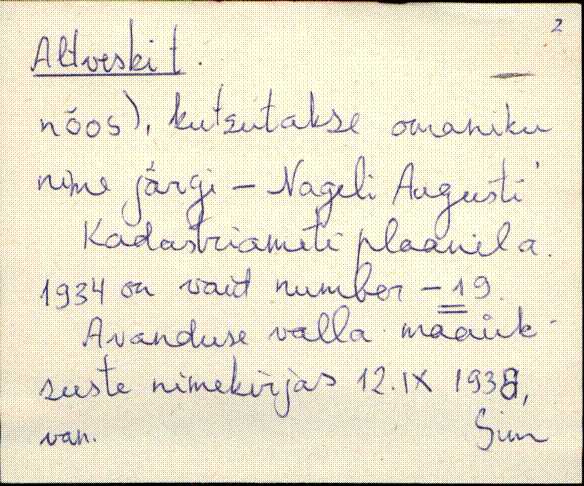 2
Altveski t.
nõos), kutsutakse omaniku
nime järgi – Nageli Augusti
Kadastriameti plaanil a.
1934 on vaid number – 19.
Avanduse valla maaük-
suste nimekirjas 12.IX 1938,
van. Sim